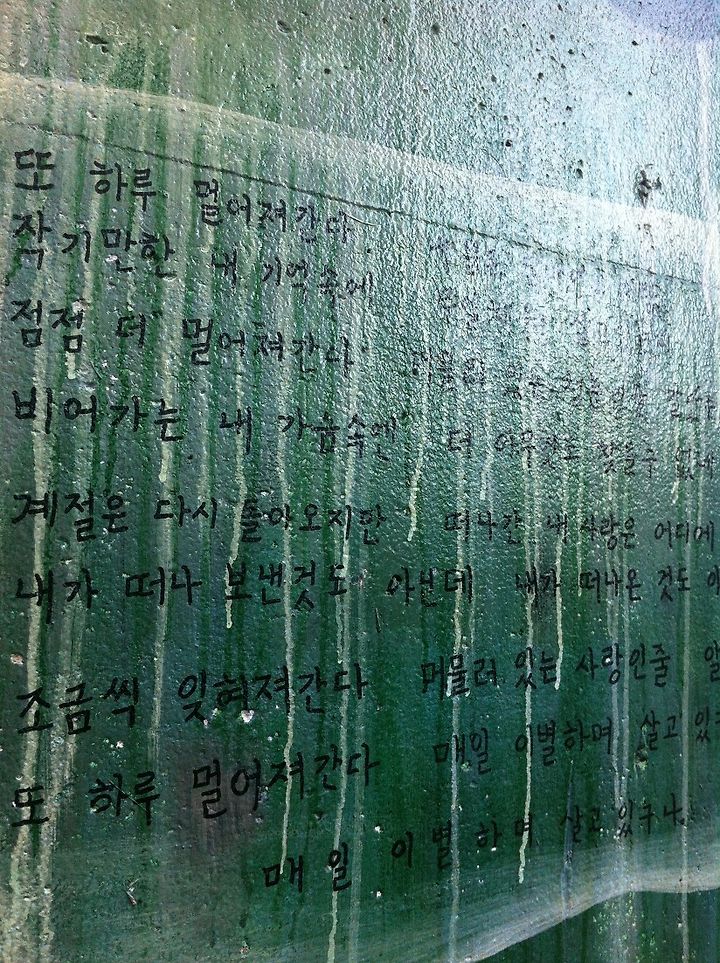 또 하루 멀어져간다
작기만한 내 기억속에
점점 더 멀어져간다 머물러
비어가는 내 가슴속엔 더 아무것도 찾을수 없네
계절은 다시 돌아오지만 떠나간 내 사랑은 어디에
내가 떠나 보낸것도 아닌데 내가 떠나온 것도
조금씩 잊혀져간다 머물러 있는 사랑인줄
또 하루 멀어져간다 매일 이별하며 살고
매일 이별하며 살고있구나